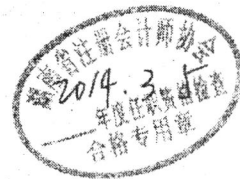 南省注册会计师协会
2014. 3. 5
年度任职资格检查
合格专用章